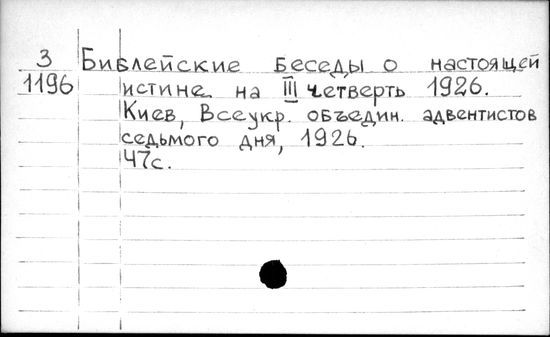 3 Библейские беседы о настоящей
1196 истине на III четверть 1926.
Киев, Всеукр. объедин. адвентистов
седьмого дня, 1926.
47с.